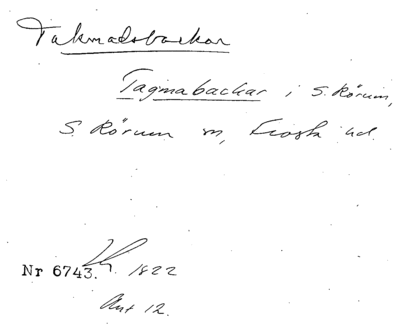 Takmadsbackar
Tagmabackar i S. Rörum,
S. Rörum sn, Frosta hd.
Nr 6743. 1822
Akt 12.